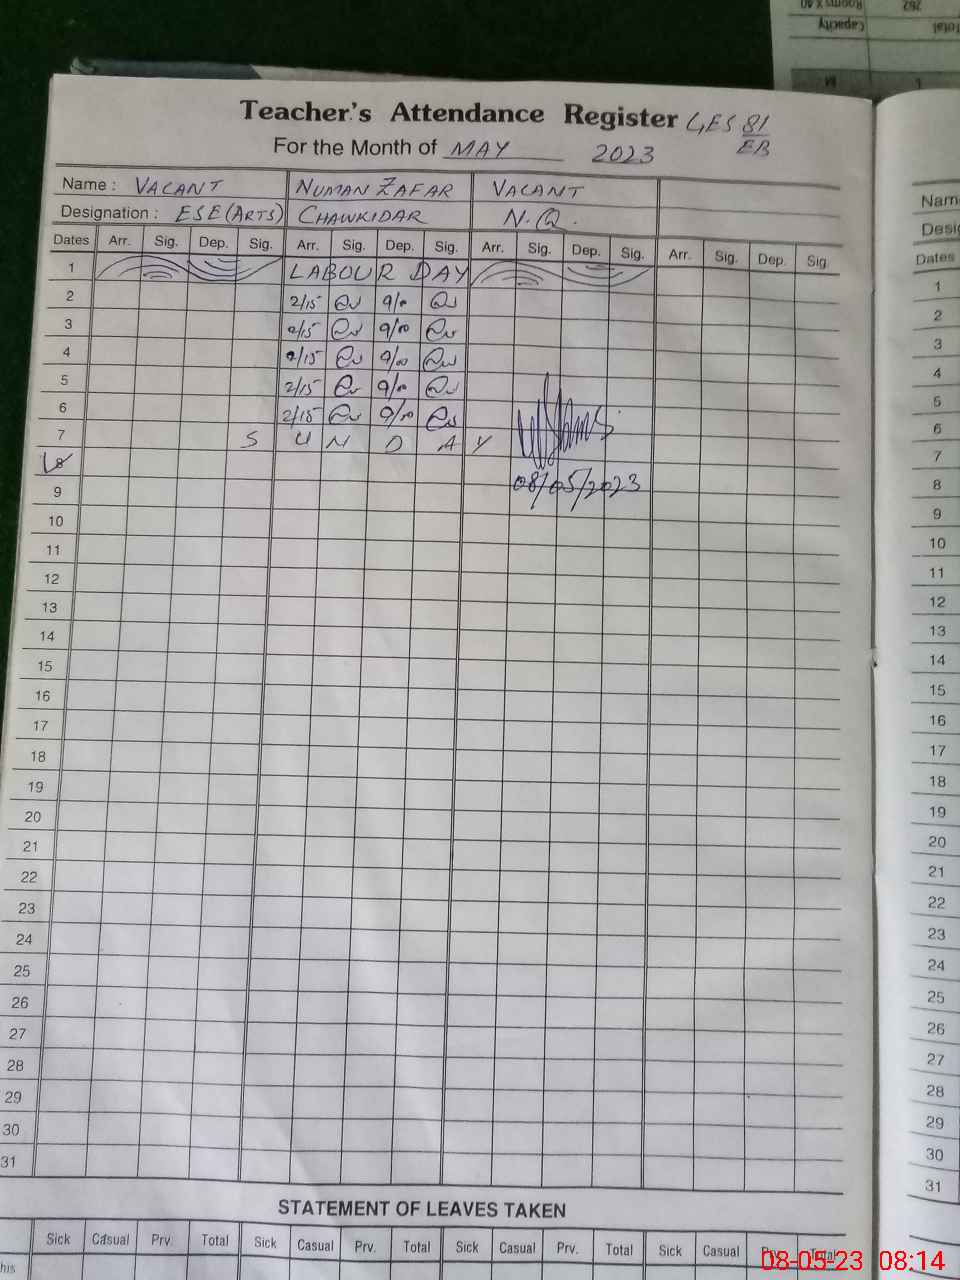 Total Capacity
262 Rooms X 40
Teacher's Attendance Register GES 81/EB
For the Month of MAY 2023
Name : VACANT NUMAN ZAFAR VACANT
Designation : ESE (ARTS) CHAWKIDAR N.Q.
Dates Arr. Sig. Dep. Sig. Arr. Sig. Dep. Sig. Arr. Sig. Dep. Sig. Arr. Sig. Dep. Sig.
1 LABOUR DAY
2 2/15 9/00
3 2/15 9/00
4 2/15 9/00
5 2/15 9/00
6 2/15 9/00
7 S U N D A Y
8
08/05/2023
9
10
11
12
13
14
15
16
17
18
19
20
21
22
23
24
25
26
27
28
29
30
31
STATEMENT OF LEAVES TAKEN
Sick Casual Prv. Total Sick Casual Prv. Total Sick Casual Prv. Total Sick Casual Prv. Total
his
08-05-23 08:14
Nam
Desig
Dates
1
2
3
4
5
6
7
8
9
10
11
12
13
14
15
16
17
18
19
20
21
22
23
24
25
26
27
28
29
30
31